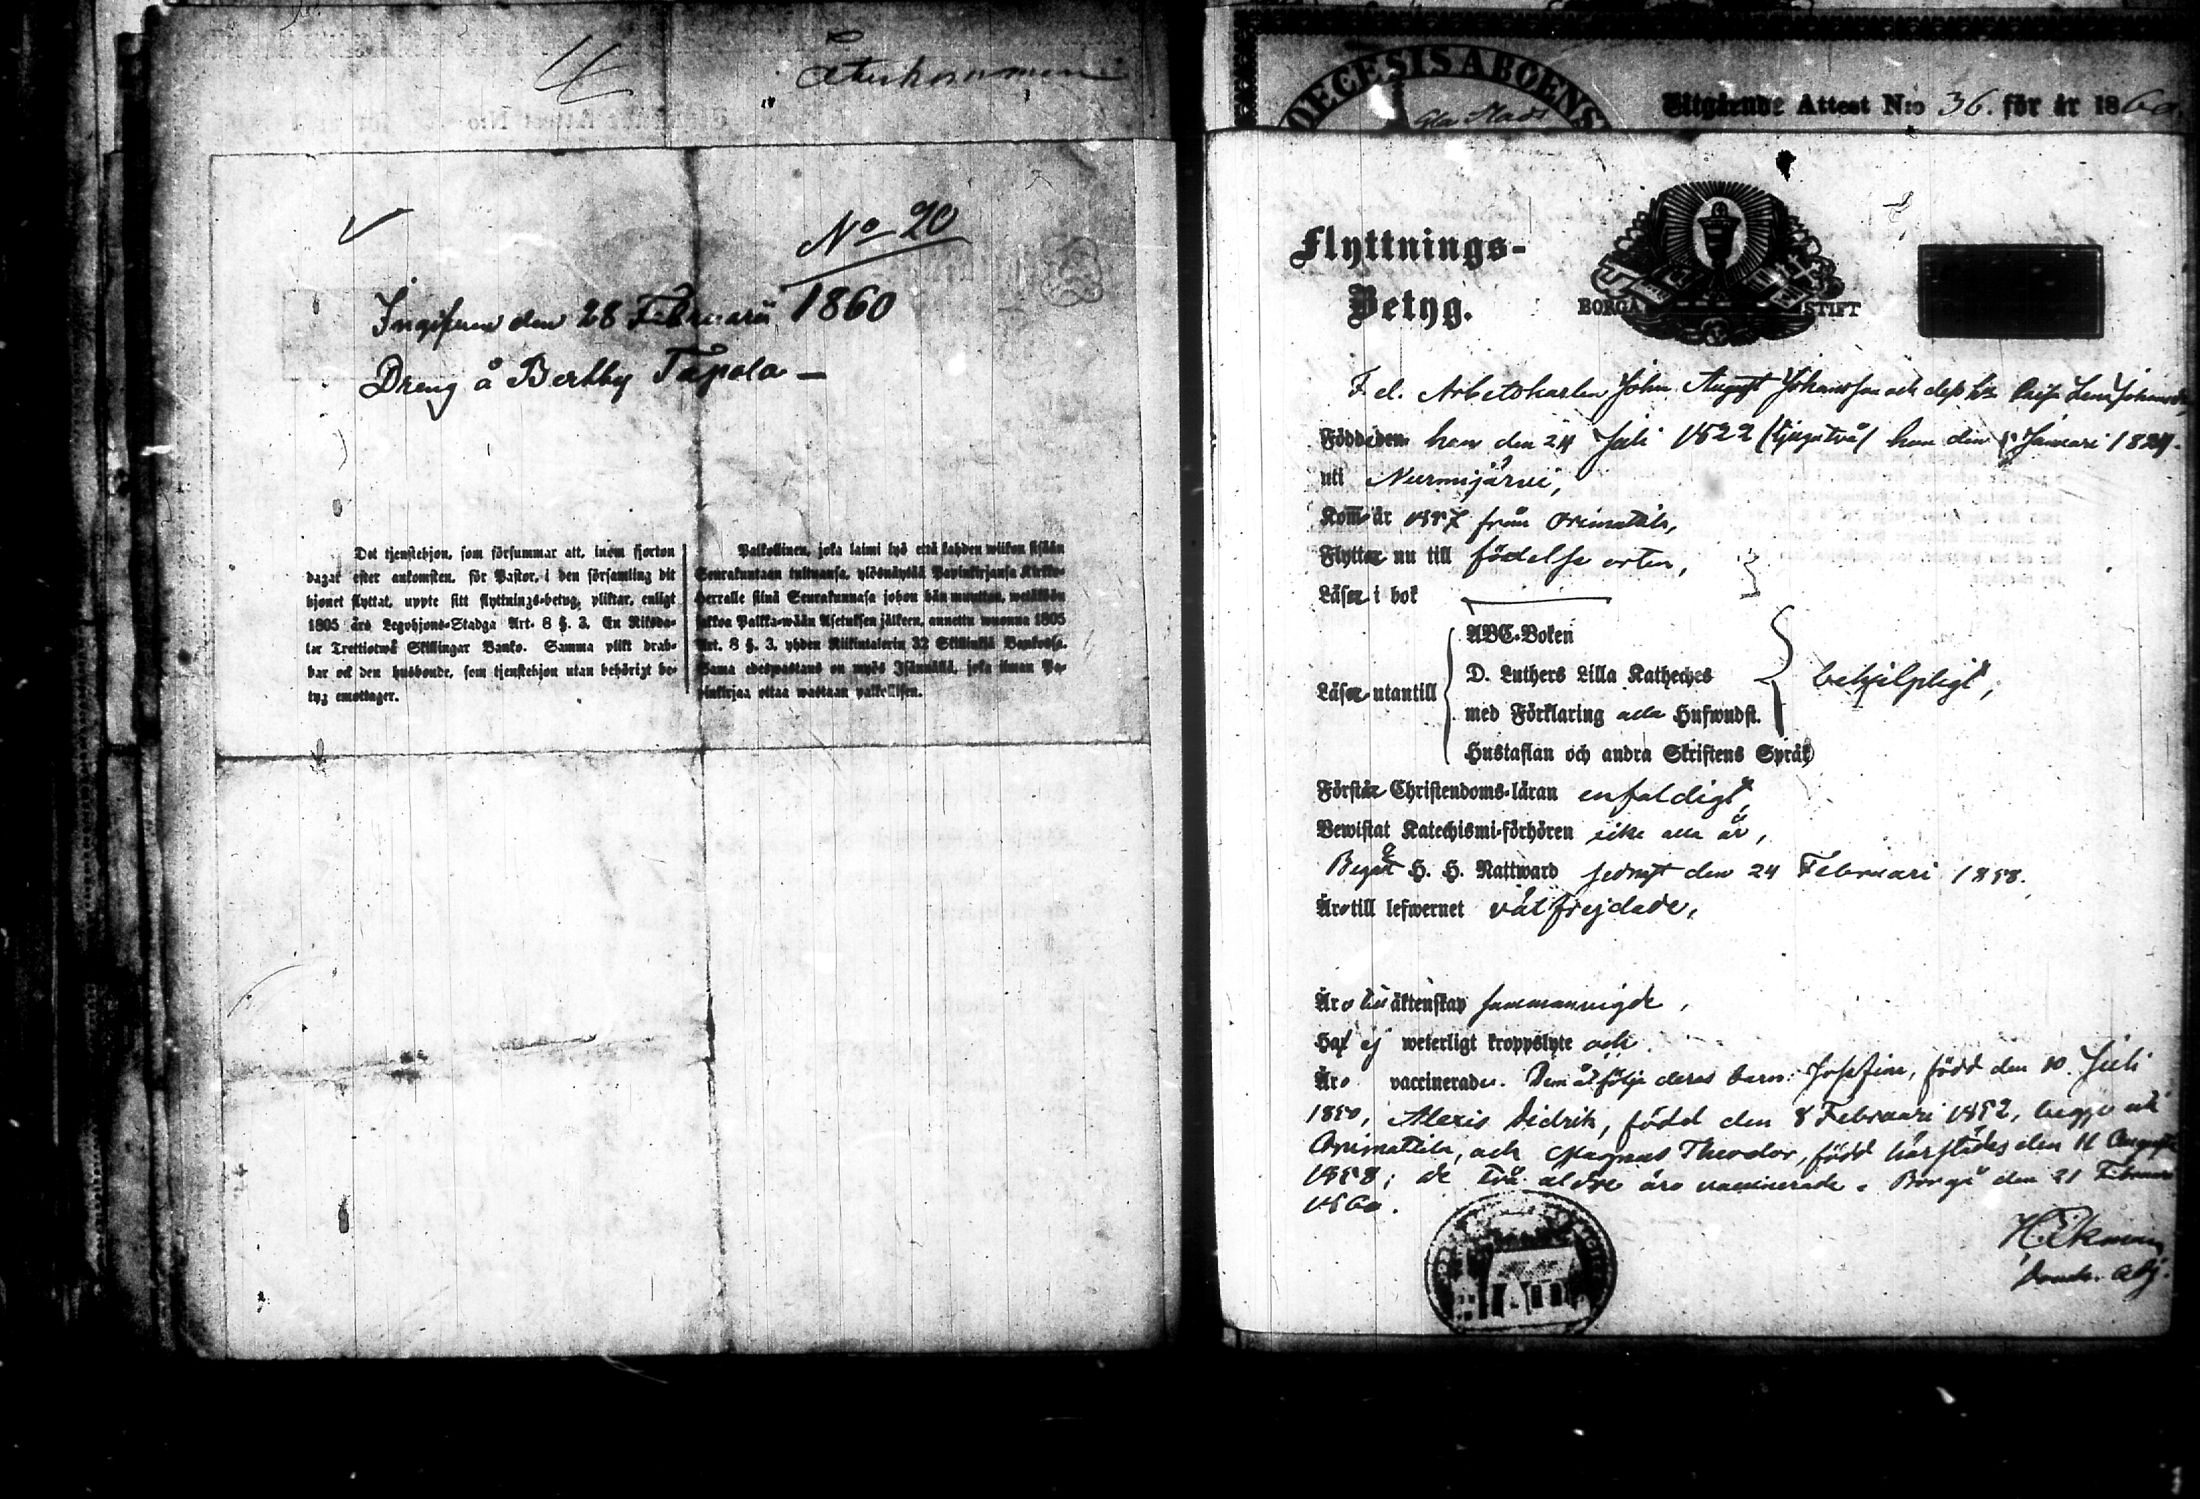 Återkommen
No 20
Ingifven den 28 Februarii 1860
Dreng å Bertby Tapola —
Det tjenstehjon, som försummar att, inom fjorton
dagar efter ankomsten, för Pastor, i den församling dit
hjonet flyttat, uppte sitt flyttnings-betyg, pliktar, enligt
1805 års Legohjons-Stadga Art. 8 §. 3. En Riksda-
ler Trettiotwå Skillingar Banko. Samma plikt drab-
bar ock den husbonde, som tjenstehjon utan behörigt be-
tyg emottager.
Palkollinen, joka laimi lyö että kahden wiikon sisään
Seurakuntaan tultuansa, ylösnäyttää Papinkirjansa Kirkko-
Herralle siinä Seurakunnasa johon hän muuttaa, wetäköön
sakkoa Palkka-wään Asetuksen jälkeen, annettu wuonna 1805
Art. 8 §. 3. yhden Riikintalerin 32 Skillinkiä Bankossa.
Sama edespastaus on myös Isännällä, joka ilman Pa-
pinkirjaa ottaa wastaan palkollisen.
DECESIS ABOENS
Utgående Attest N:o 36. för år 1860.
Flyttnings-
Betyg.
BORGÅ STIFT
F. d. Arbetskarlen John August Johansson och dess h:u Lena Johansdr
Födde den han den 24 Juli 1822 (tjugutvå) hon den Januari 1824.
uti Nurmijärvi,
Kom år 1857 från Orimattila,
Flyttar nu till födelse orten,
Läser i bok
Läser utantill
ABC-Boken
D. Luthers Lilla Katheches
med Förklaring alla Hufwudst.
Hustaflan och andra Skriftens Språk
behjelpligt,
Förstår Christendoms-läran enfaldigt,
Bewistat Katechismi-förhören icke alla år,
Begått H. H. Nattward sednast den 24 Februari 1858.
Äro till lefwernet välfrejdade,
Äro till äktenskap sammanvigde,
Haf ej weterligt kroppslyte och
Äro vaccinerade. Dem åtfölja deras barn: Josefina, född den 10 Juli
1850, Alexis Didrik, född den 8 Februari 1852, begge uti
Orimattila, och Magnus Theodor, född härstädes den 11 Augusti
1858; de två äldre äro vaccinerade. Borgå den 21 Februari
1860.
H. Ekman
Domk. adj.